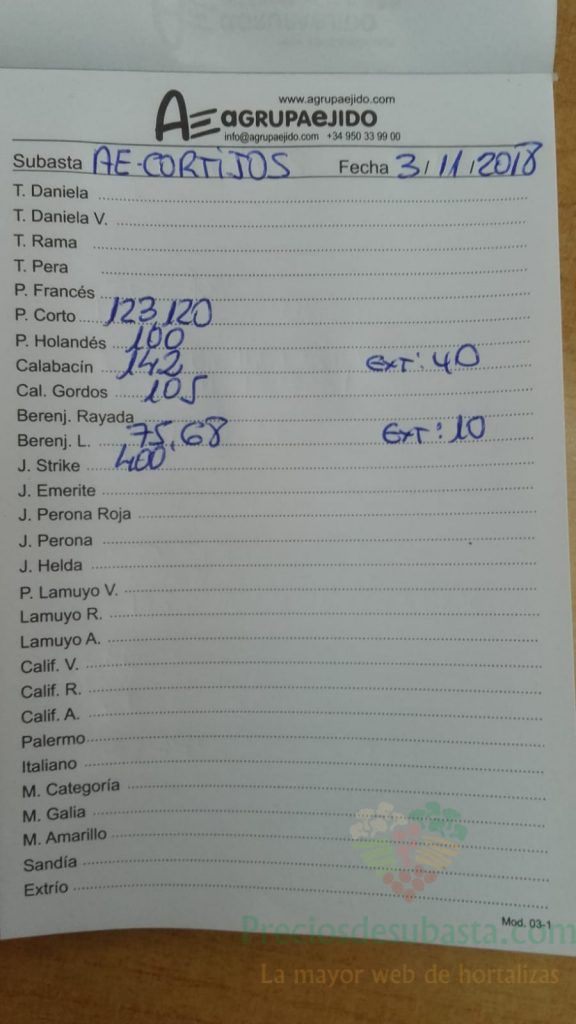 www.agrupaejido.com
AE AGRUPAEJIDO
info@agrupaejido.com +34 950 33 99 00
Subasta AE-CORTIJOS Fecha 3/11/2018
T. Daniela
T. Daniela V.
T. Rama
T. Pera
P. Francés
P. Corto 123,120
P. Holandés 100
Calabacín 142 EXT: 40
Cal. Gordos 105
Berenj. Rayada
Berenj. L. 75,68 EXT: 10
J. Strike 400
J. Emerite
J. Perona Roja
J. Perona
J. Helda
P. Lamuyo V.
Lamuyo R.
Lamuyo A.
Calif. V.
Calif. R.
Calif. A.
Palermo
Italiano
M. Categoría
M. Galia
M. Amarillo
Sandía
Extrío
Mod. 03-1
Preciosdesubasta.com
La mayor web de hortalizas